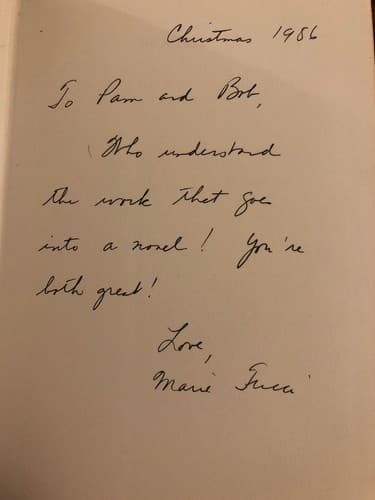 Christmas 1986
To Pam and Bob,
Who understand
the work that goes
into a novel! You're
both great!
Love,
Marie